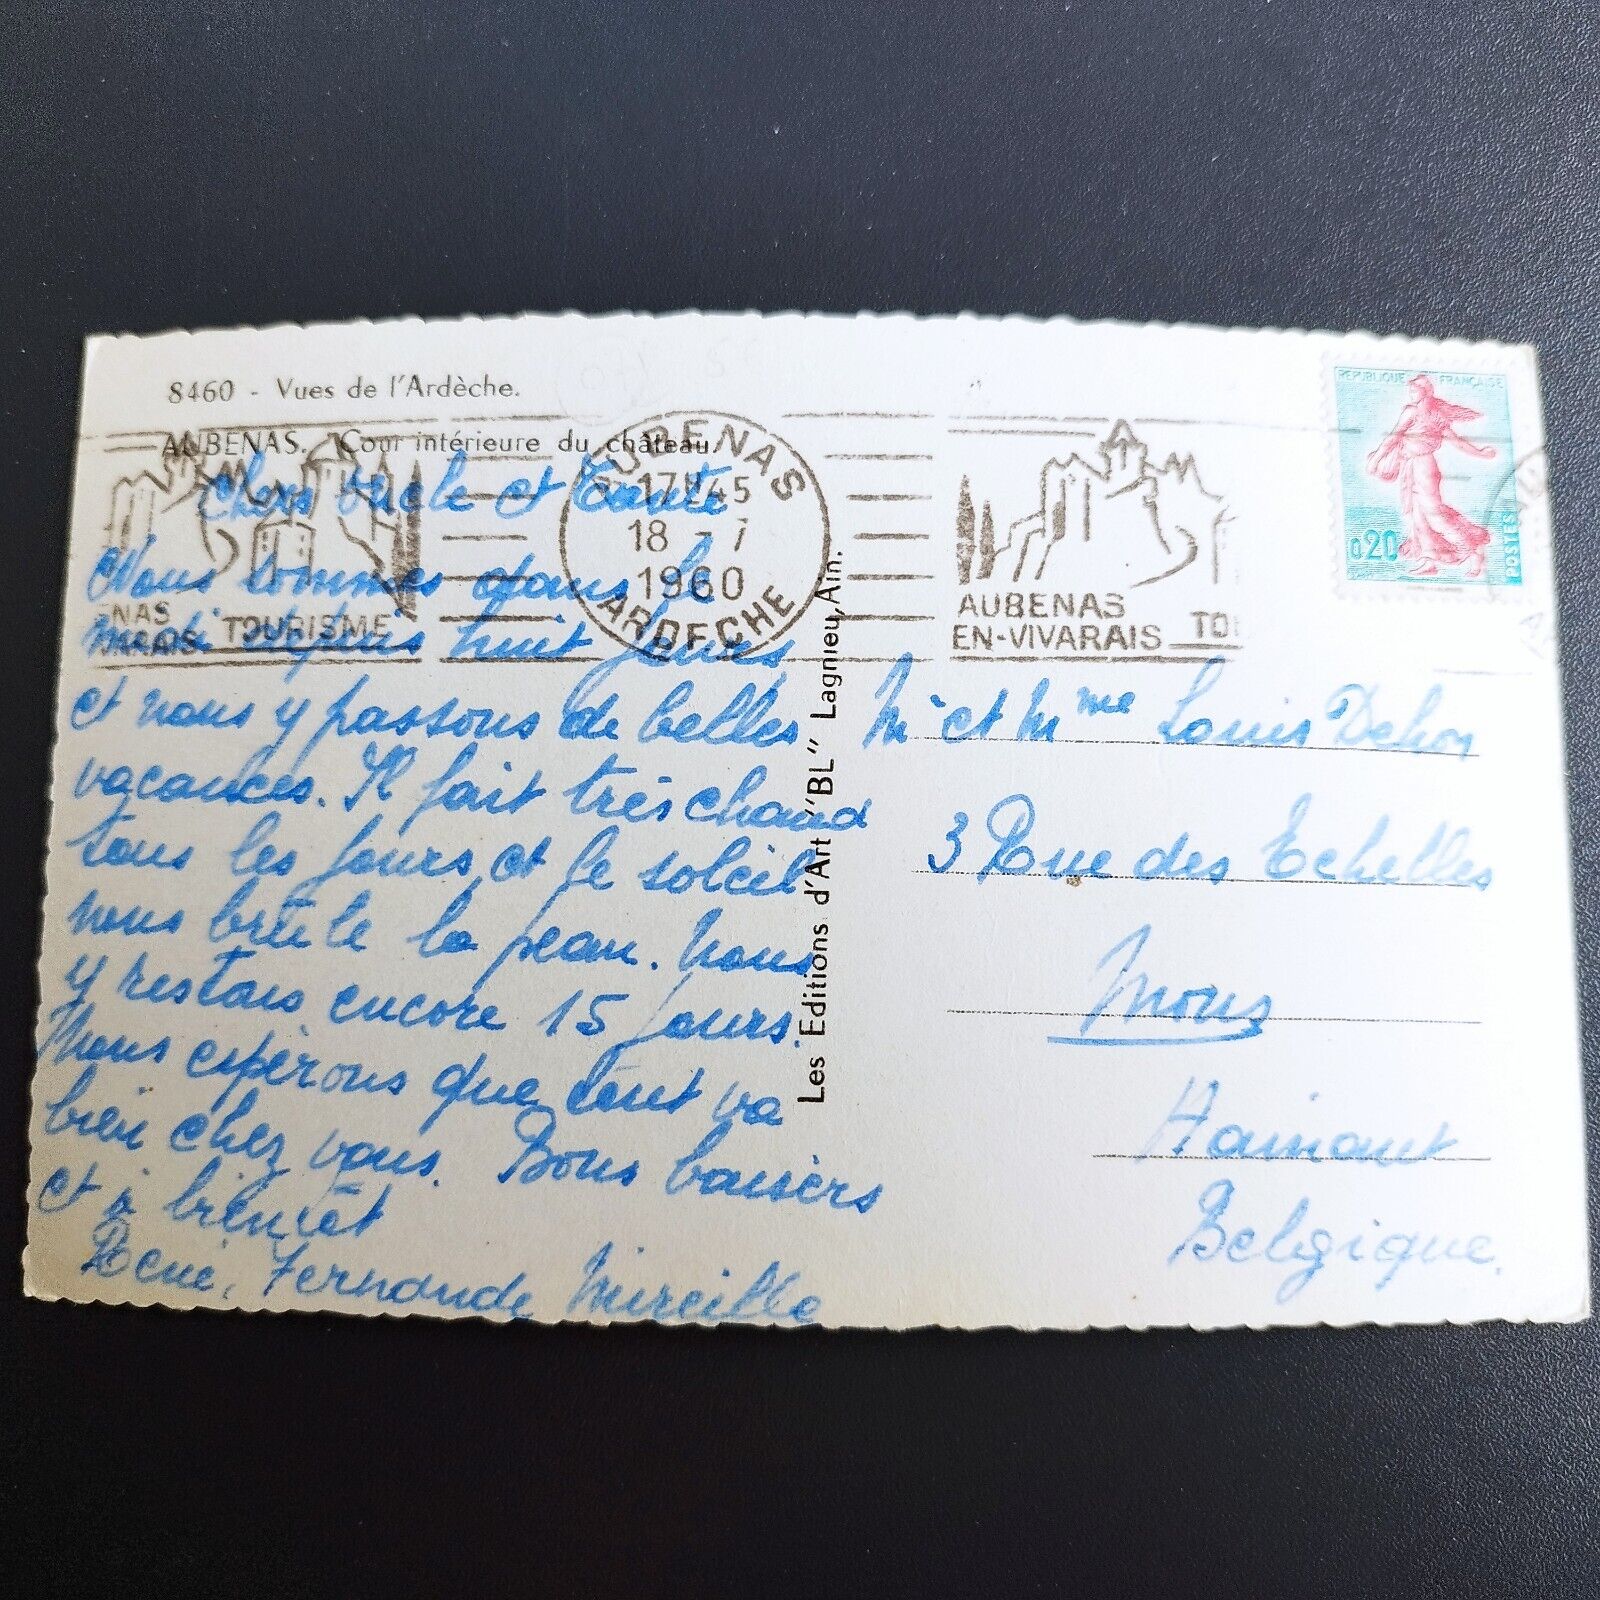 8460 - Vues de l'Ardèche.
AUBENAS. Cour intérieure du château.
AUBENAS
17H45
18 - 7
1960
ARDECHE
NAS
VARAIS TOURISME
AUBENAS
EN-VIVARAIS TO
REPUBLIQUE FRANÇAISE
0,20
POSTES
Chers Oncle et Tante
Nous sommes dans le
midi depuis huit jours
et nous y passons de belles
vacances. Il fait très chaud
tous les jours et le soleil
nous brûle la peau. Nous
y restons encore 15 jours.
Nous espérons que tout va
bien chez vous. Bons baisers
et à bientôt
René, Fernande Mireille
Les Editions d'Art "BL" Lagnieu, Ain.
Mr et Mme Louis Dehon
3 Rue des Echelles
Mons
Hainaut
Belgique.